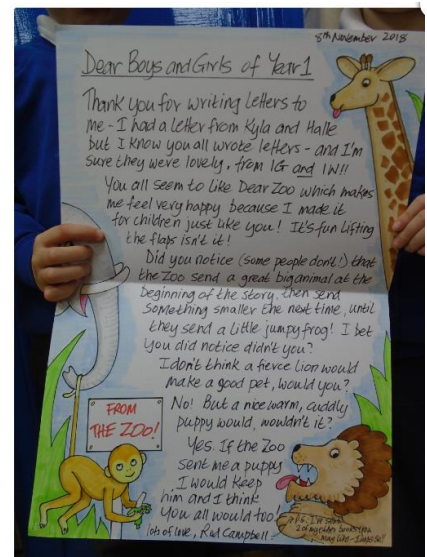 8th November 2018
Dear Boys and Girls of Year 1
Thank you for writing letters to
me - I had a letter from Kyla and Halle
but I know you all wrote letters - and I'm
sure they were lovely, from 1G and 1W!!
You all seem to like Dear Zoo which makes
me feel very happy because I made it
for children just like you! It's fun lifting
the flaps isn't it!
Did you notice (some people don't!) that
the Zoo send a great big animal at the
beginning of the story. Then send
something smaller the next time, until
they send a little jumpy frog! I bet
you did notice didn't you?
I don't think a fierce Lion would
make a good pet, would you?
No! But a nice warm, cuddly
puppy would, wouldn't it?
Yes. If the Zoo
sent me a puppy
I would keep
him and I think
you all would too!
lots of love, Rod Campbell
FROM
THE ZOO!
P.S. I've sent
2 of my other books you
may like - I hope so!